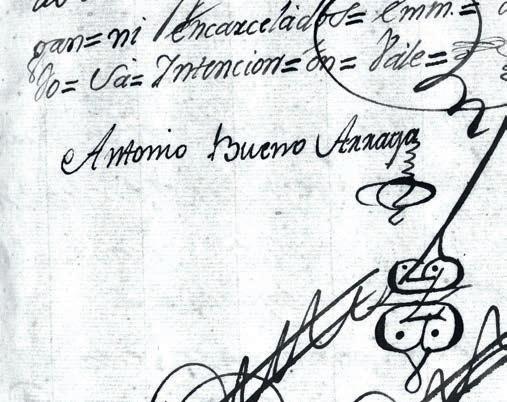 gan= ni encarcelados= emm.=
do= Va= Intencion= on= Vale=
Antonio Bueno Arraga